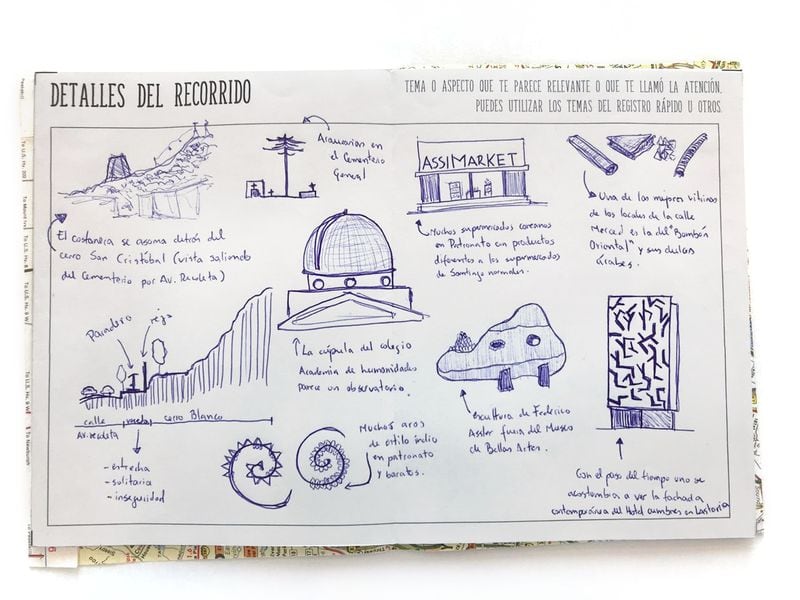 DETALLES DEL RECORRIDO
TEMA O ASPECTO QUE TE PARECE RELEVANTE O QUE TE LLAMÓ LA ATENCIÓN.
PUEDES UTILIZAR LOS TEMAS DEL REGISTRO RÁPIDO U OTROS
Araucarias en
el Cementerio
General
ASSIMARKET
El costanera se asoma detrás del
cerro San Cristóbal (vista saliendo
del Cementerio por Av. Recoleta)
Muchos supermercados coreanos
en Patronato con productos
diferentes a los supermercados
de Santiago normales.
Una de las mejores vitrinas
de los locales de la calle
Merced es la del "Bombón
Oriental" y sus dulces
árabes.
Paradero
reja
La cúpula del colegio
Academia de humanidades
parece un observatorio.
calle
vereda
cerro Blanco
Av. recoleta
- estrecha
- solitaria
- inseguridad
Muchos aros
de estilo indio
en patronato
y baratos.
escultura de Federico
Assler fuera del Museo
de Bellas Artes.
Con el paso del tiempo uno se
acostumbra a ver la fachada
contemporánea del Hotel cumbres en Lastarria